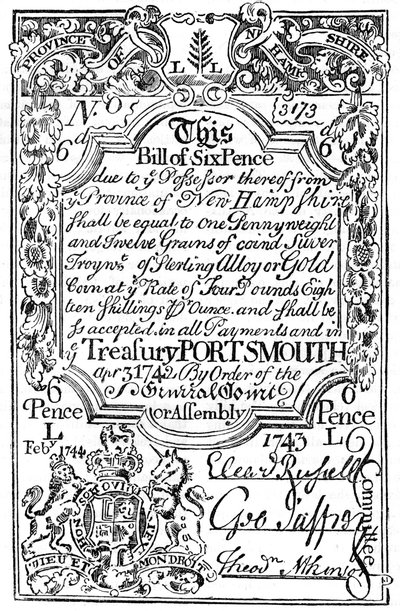 PROVINCE OF NEW HAMPSHIRE
L L
No 05 (3173
6d 6d
This
Bill of Six Pence
due to ye Possessor thereof from
ye Province of New Hampshire
shall be equal to one Pennyweight
and Twelve Grains of coind Silver
Troywt. of Sterling Alloy or Gold
Coin at ye Rate of Four Pounds Eigh
teen Shillings ℔ Ounce. and shall be
so accepted. in all Payments and in
ye Treasury PORTSMOUTH
Apr 3 1742 By Order of the
General Court
or Assembly
6 Pence 6 Pence
L L
Feby 1744 1743
Elear Russell
Geo Jaffrey
Theodr Atkinson
Committee
DIEU ET MON DROIT